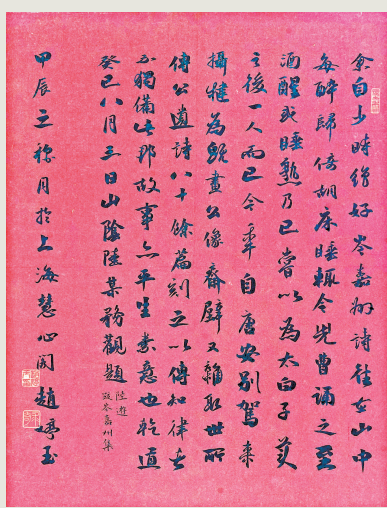 余自少時絕好岑嘉州詩往在山中
每醉歸倚胡床睡輒令兒曹誦之至
酒醒或睡熟乃已嘗以為太白子美
之後一人而已今年自唐安別駕來
攝犍為既畫公像齋壁又雜取世所
傳公遺詩八十餘篇刻之以傳知律者
不獨備此邦故事亦平生素意也乾道
癸巳八月三日山陰陸某務觀題
陸遊
跋岑嘉州集
甲辰立秋月於上海慧心閣趙婷玉